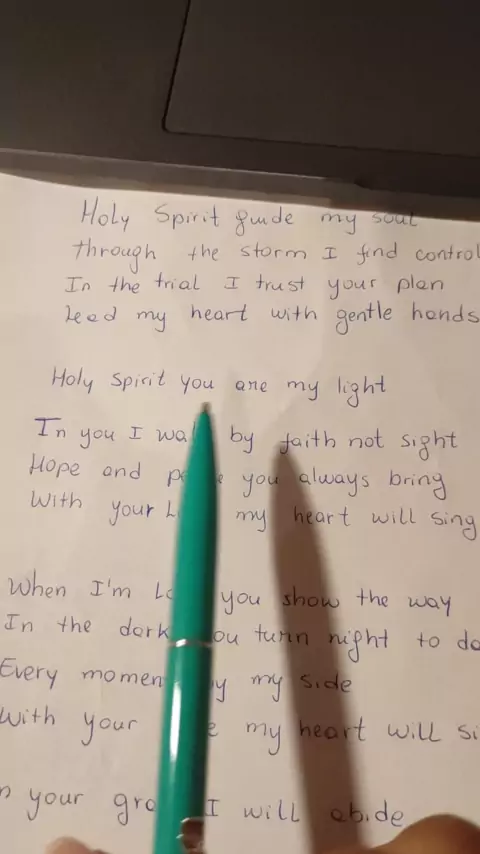 Holy Spirit guide my soul
through the storm I find control
In the trial I trust your plan
Lead my heart with gentle hands
Holy Spirit you are my light
In you I walk by faith not sight
Hope and you always bring
With your my heart will sing
When I'm you show the way
In the dark you turn night to
Every moment by my side
With your my heart will
your I will abide